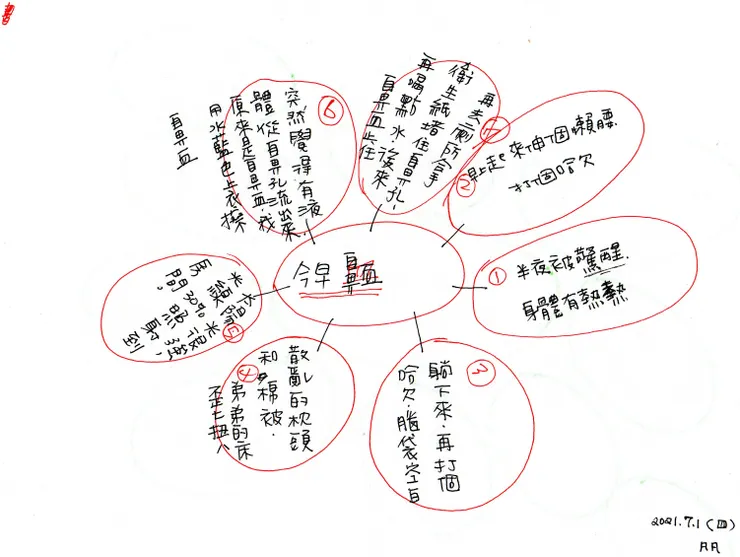 今早鼻血
①
半夜被驚醒.
身體有熱熱
②
早上起來伸個懶腰
打個哈欠
③
躺下來.再打個
哈欠腦袋空白
④
散亂的枕頭
和棉被.
弟弟的床
歪七扭八
⑤
⑥
突然覺得有液
體從鼻孔流出來,
原來是鼻血,我
用水藍色上衣擦
鼻血
⑦
再去廁所拿
衛生紙堵住鼻孔,
再喝點水,後來
鼻血止住
2021.7.1(四)